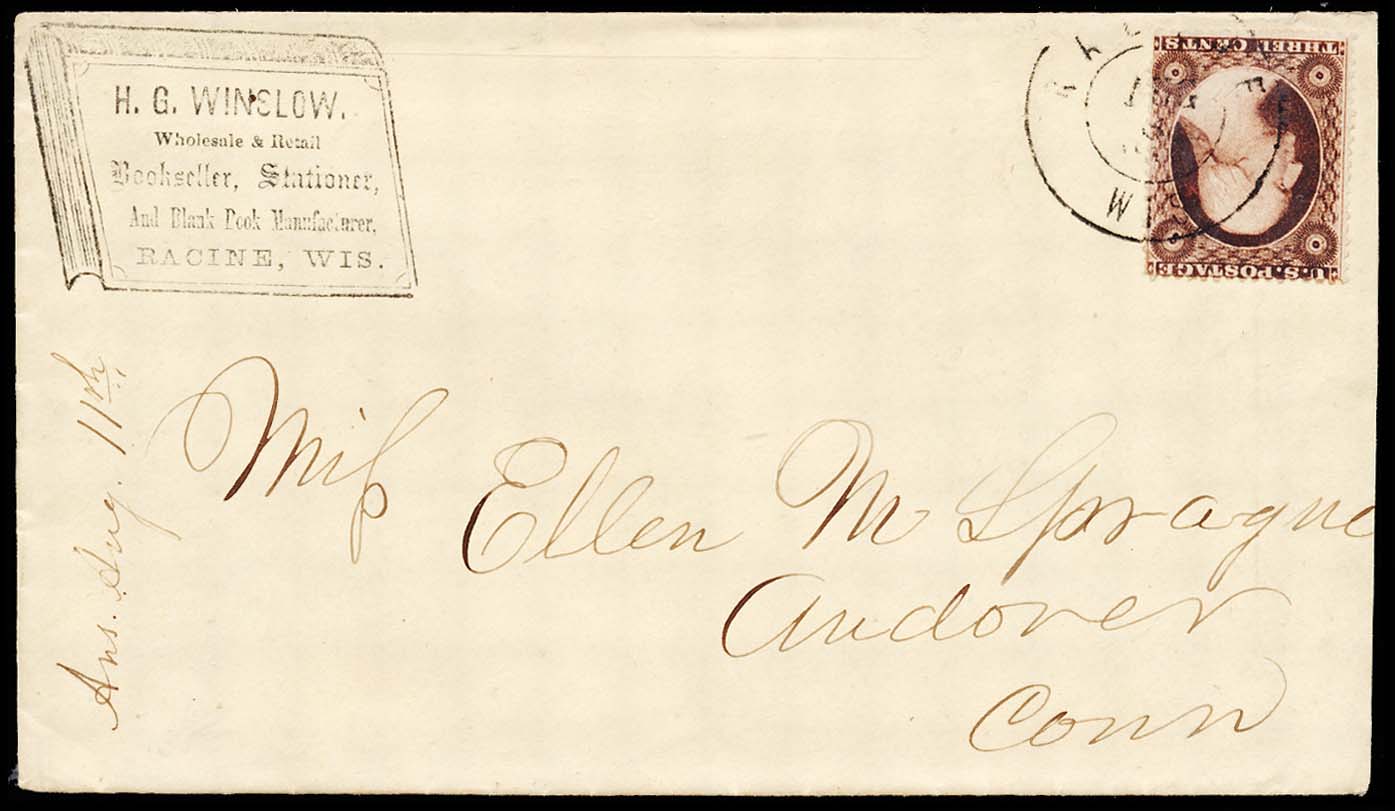 H. G. WINSLOW.
Wholesale & Retail
Bookseller, Stationer,
And Blank Book Manufacturer,
RACINE, WIS.
THREE CENTS
U.S. POSTAGE
WIS
Ans. Aug. 11th
Miſs Ellen M Sprague
Andover
Conn